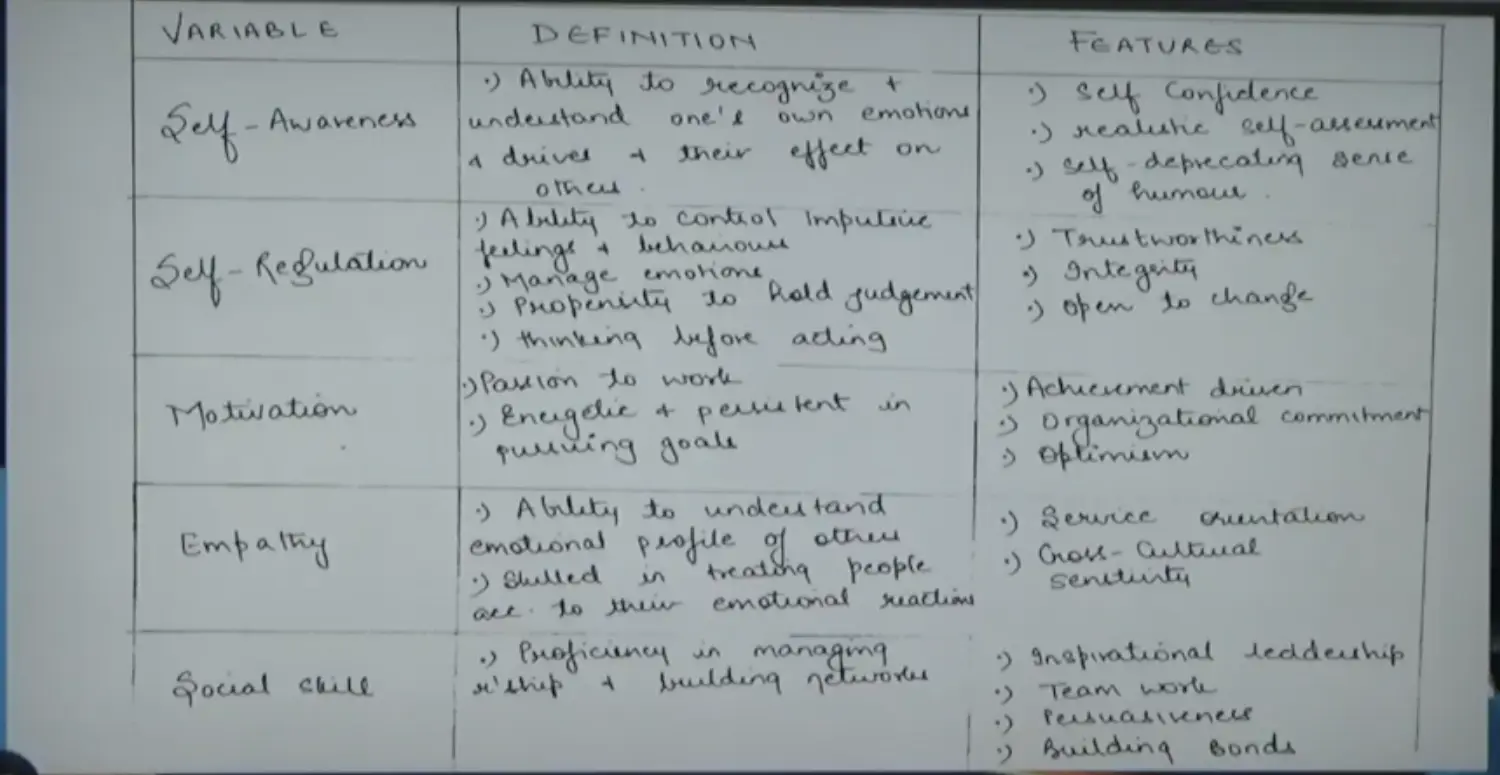 VARIABLE
DEFINITION
FEATURES
Self-Awareness
·) Ability to recognize +
understand one's own emotions
& drives + their effect on
others.
·) Self Confidence
·) realistic self-assessment
·) self-deprecating sense
of humour.
Self-Regulation
·) Ability to control impulsive
feelings + behaviours
·) Manage emotions
·) Propensity to hold judgement
·) thinking before acting
·) Trustworthiness
·) Integrity
·) open to change
Motivation
·) Passion to work
·) Energetic + persistent in
pursuing goals
·) Achievement driven
·) Organizational commitment
·) Optimism
Empathy
·) Ability to understand
emotional profile of others
·) Skilled in treating people
acc. to their emotional reactions
·) Service orientation
·) Cross-Cultural
sensitivity
Social skill
·) Proficiency in managing
r'ship + building networks
·) Inspirational leddership
·) Team work
·) Persuasiveness
·) Building Bonds